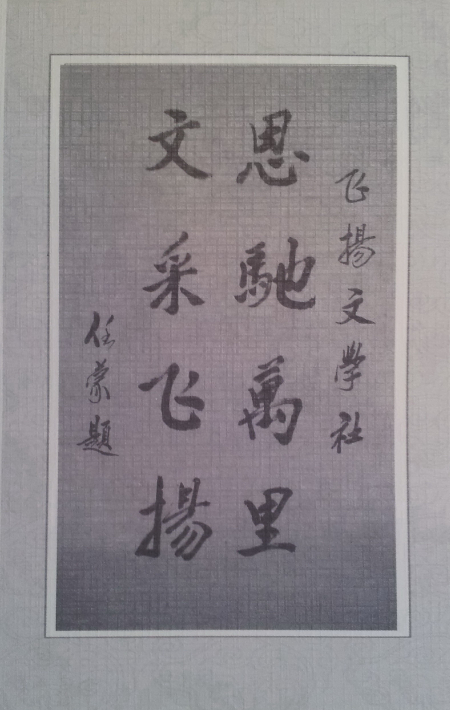 飞揚文學社
思馳萬里
文采飞揚
任蒙題